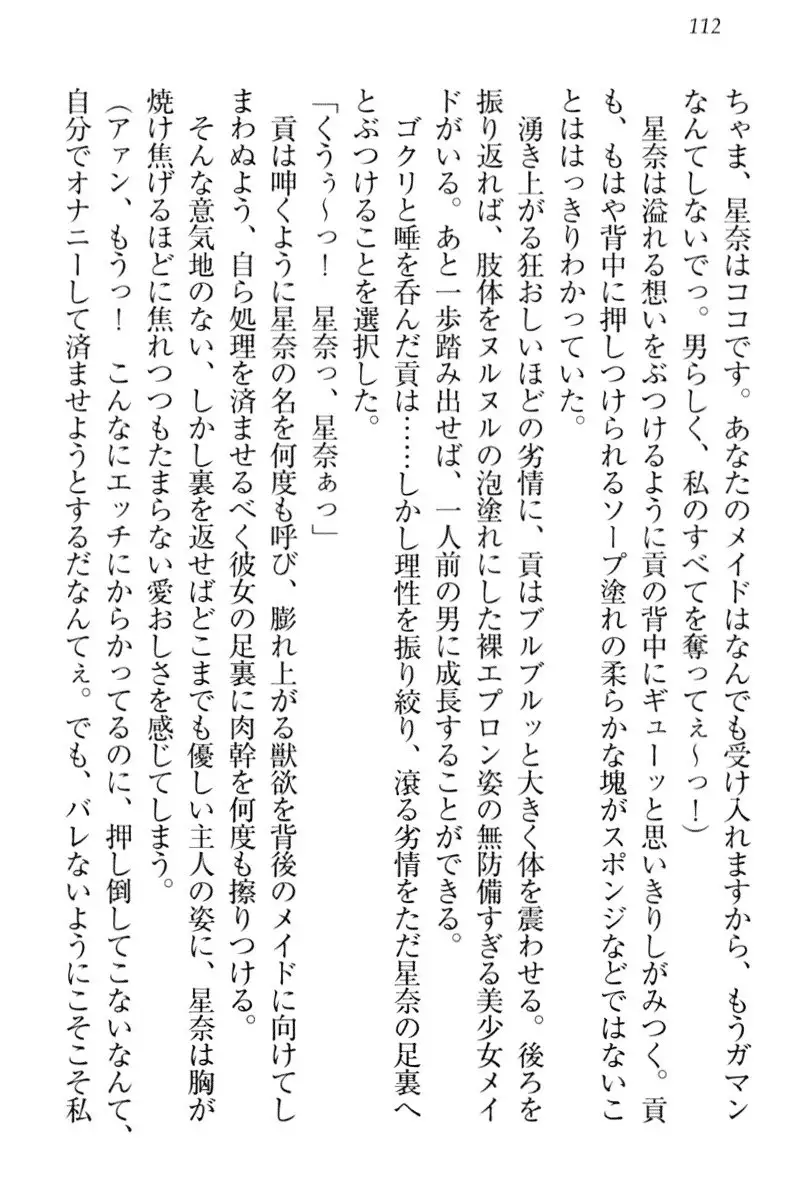 112
ちゃま、星奈はココです。あなたのメイドはなんでも受け入れますから、もうガマン
なんてしないでっ。男らしく、私のすべてを奪ってぇ～っ！）
星奈は溢れる想いをぶつけるように貢の背中にギューッと思いきりしがみつく。貢
も、もはや背中に押しつけられるソープ塗れの柔らかな塊がスポンジなどではないこ
とははっきりわかっていた。
湧き上がる狂おしいほどの劣情に、貢はブルブルッと大きく体を震わせる。後ろを
振り返れば、肢体をヌルヌルの泡塗れにした裸エプロン姿の無防備すぎる美少女メイ
ドがいる。あと一歩踏み出せば、一人前の男に成長することができる。
ゴクリと唾を呑んだ貢は……しかし理性を振り絞り、滾る劣情をただ星奈の足裏へ
とぶつけることを選択した。
「くうぅ～っ！　星奈っ、星奈ぁっ」
貢は呻くように星奈の名を何度も呼び、膨れ上がる獣欲を背後のメイドに向けてし
まわぬよう、自ら処理を済ませるべく彼女の足裏に肉幹を何度も擦りつける。
そんな意気地のない、しかし裏を返せばどこまでも優しい主人の姿に、星奈は胸が
焼け焦げるほどに焦れつつもたまらない愛おしさを感じてしまう。
（アァン、もうっ！　こんなにエッチにからかってるのに、押し倒してこないなんて、
自分でオナニーして済ませようとするだなんてぇ。でも、バレないようにこそこそ私